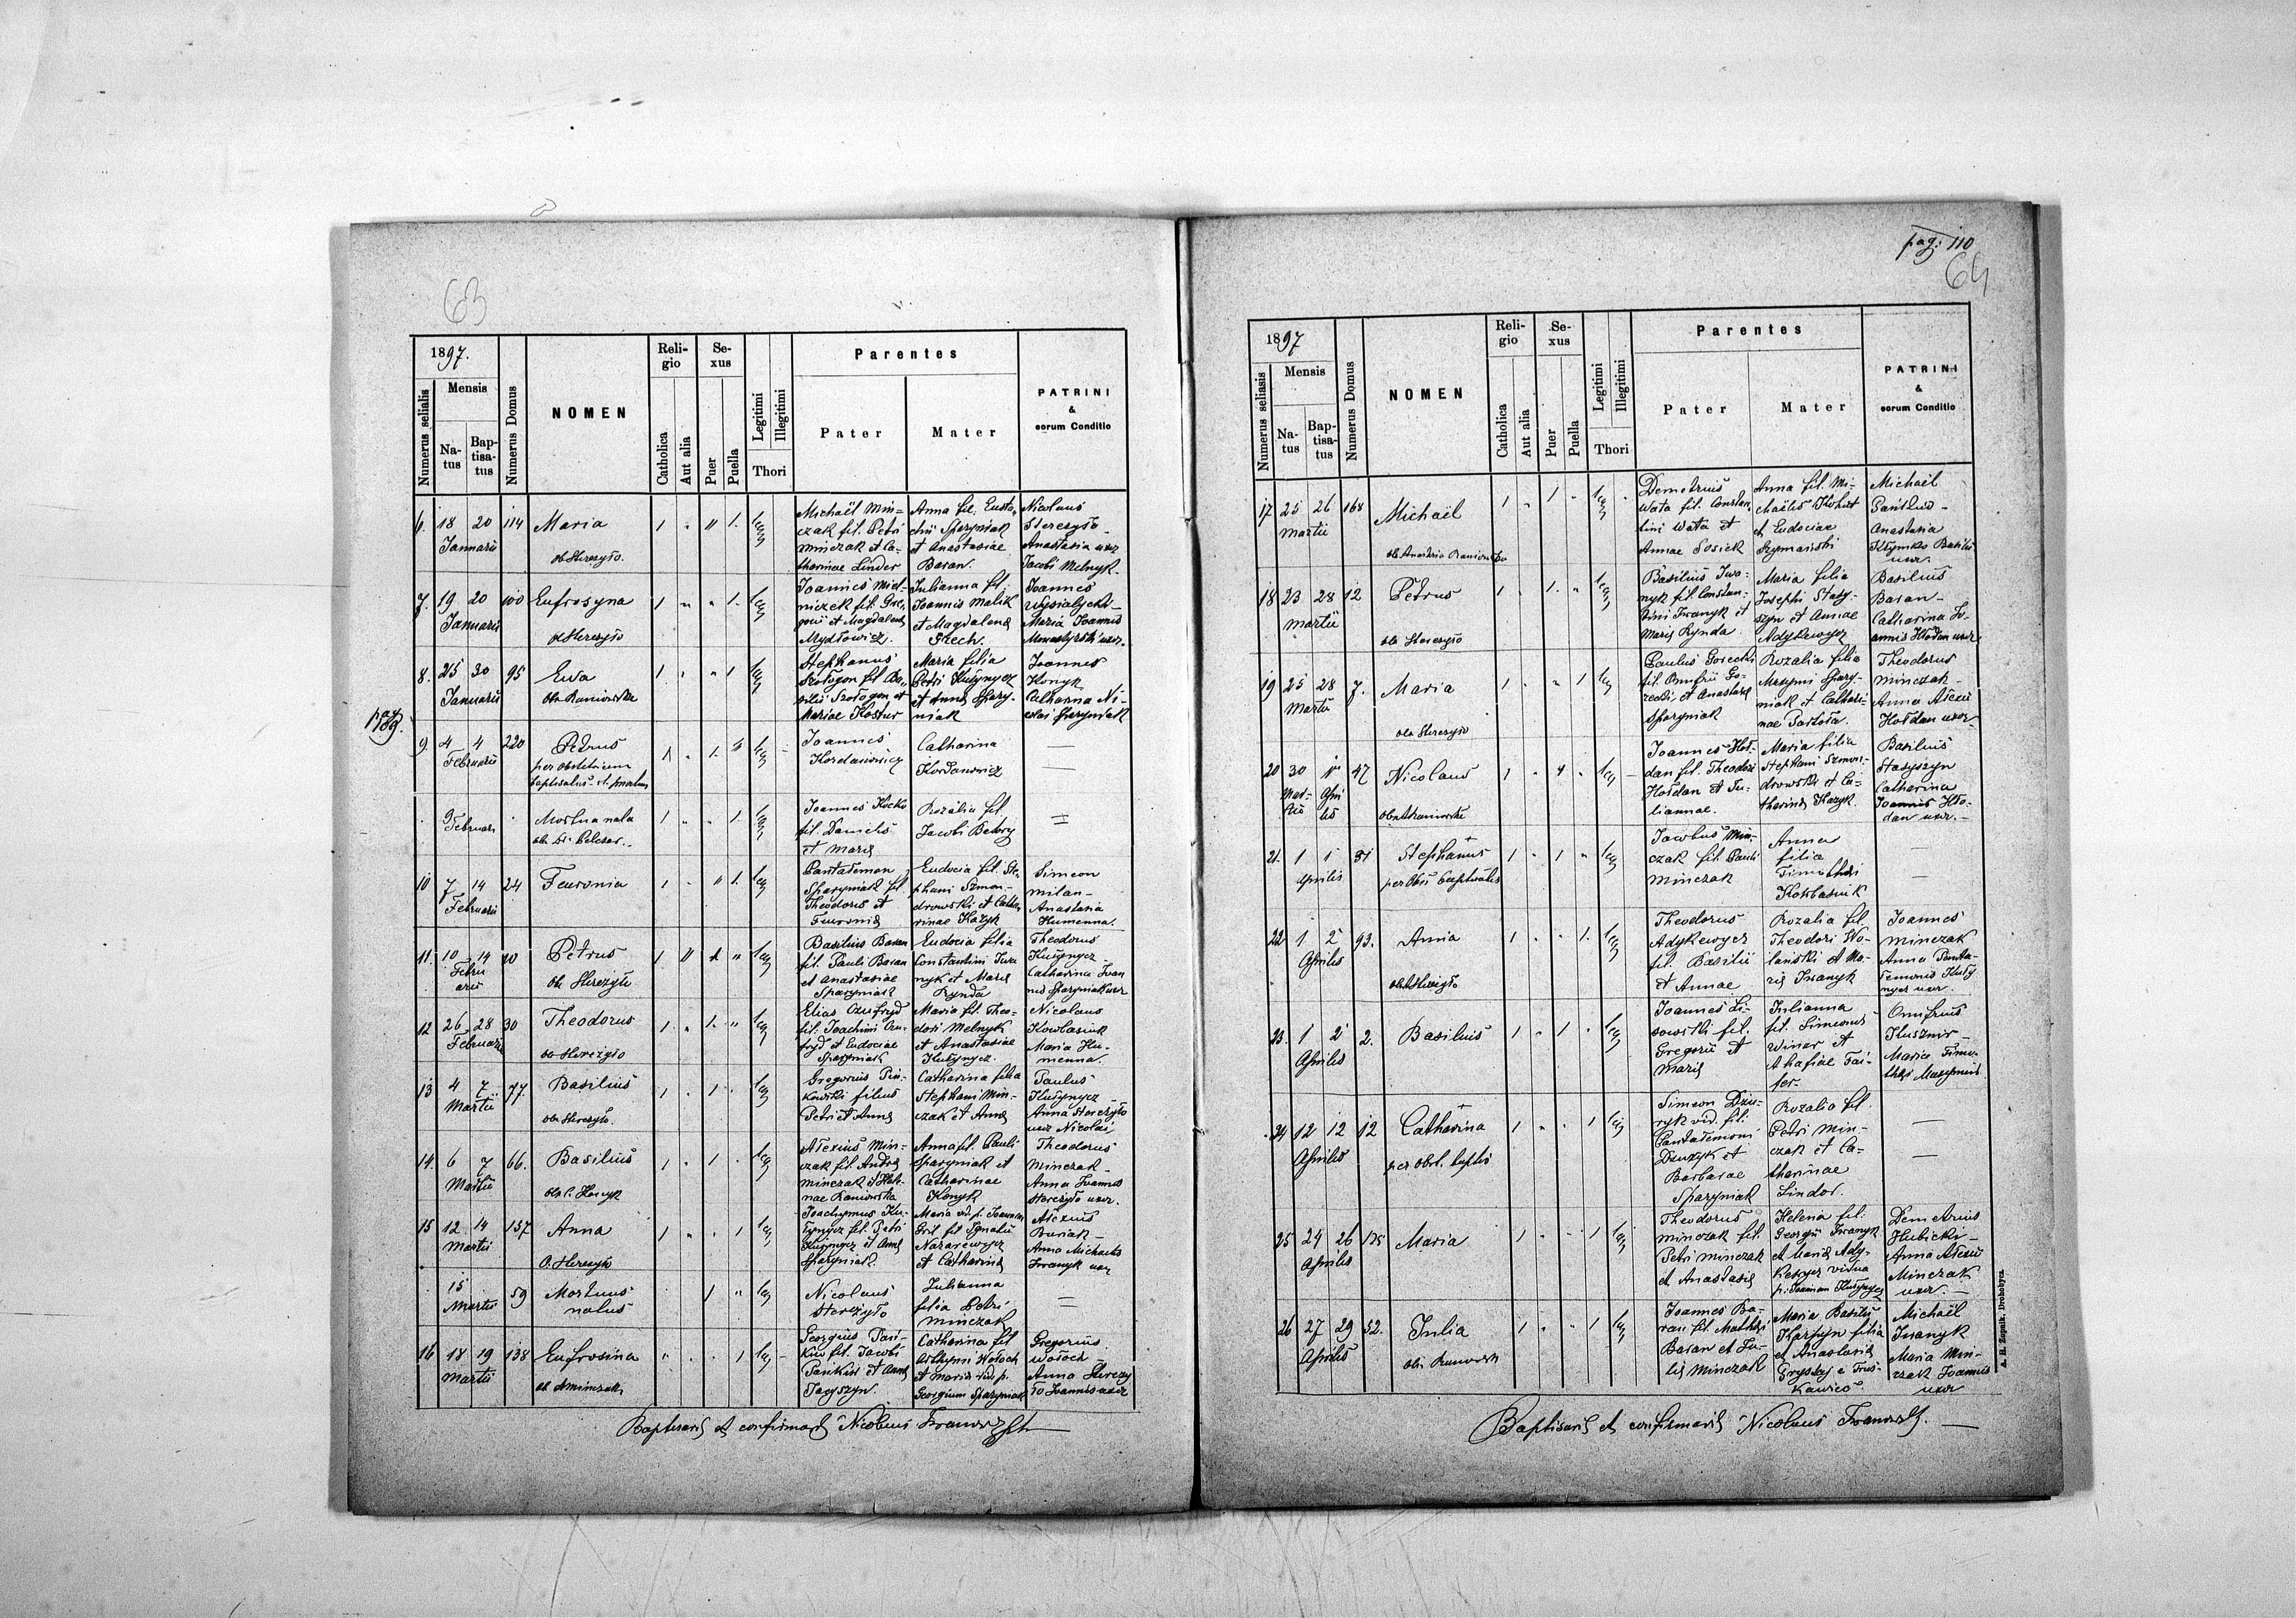 63
1897.
Numerus serialis
Mensis
Natus
Baptisatus
Numerus Domus
NOMEN
Religio
Catholica
Aut alia
Sexus
Puer
Puella
Legitimi
Illegitimi
Thori
Parentes
Pater
Mater
PATRINI
&
eorum Conditio
6. 18 20 114 Maria
Januarii
ob. Sterczyło.
Michaël Minczak fil. Petri
Minczak et Catharinae Linder
Anna fil. Eustachii Sparyniak
et Anastasiae
Baran.
Nicolaus
Sterczyło
Anastasia uxor
Jacobi Melnyk.
7. 19 20 100 Eufrosyna
Januarii
ob Sterczyło
Joannes Mielniczek fil. Gregorii et Magdalenae
Mydłowicz.
Julianna fil.
Joannis Malik
et Magdalenae
Stech.
Joannes
Wysialycki
Maria Joannis
Monastyrski uxor.
8. 25 30 95 Eva
Januarii
ob. Raniowska
Stephanus
Szołogon fil Basilii Szołogon et
Mariae Kostur
Maria filia
Petri Kułynycz
et Annae Sparyniak
Joannes
Konyk
Catharina Nicolai Sparyniak
9. 4 4 220 Petrus
Februarii
per obstetricem
baptisatus et mortuus
Joannes
Kordanowicz
Catharina
Kordanowicz
9 Februarii
Mortua nata
Joannes Kocko
fil. Danielis
et Mariae
Rozalia fil.
Jacobi Bedrij
10 7 14 24 Feuronia
Februarii
Pantalemon
Sparyniak fil.
Theodorus et
Feuroniae
Eudocia fil. Stephani Szmondrowski et Catharinae Kazyk
Simeon
Milan
Anastasia
Humenna.
11. 10 14 10 Petrus
Februarii
ob. Sterczyło
Basilius Baran
fil. Pauli Baran
et Anastasiae
Sparyniak
Eudocia filia
Constantini Iwanyk et Mariae
Rynda
Theodorus
Kułynycz
Catharina Joannis Sparyniak uxor
12 26 28 30 Theodorus
Februarii
ob Sterczyło
Elias Onufryd
fil. Joachimi Onufryd et Eudociae
Sparyniak
Maria fil. Theodori Melnyk
et Anastasiae
Kułynycz.
Nicolaus
Kowbasiuk
Maria Humenna.
13 4 7 77. Basilius
Martii
ob. Sterczyło.
Gregorius Pinkowski filius
Petri et Annae
Catharina filia
Stephani Minczak et Annae
Paulus
Kułynycz
Anna Sterczyło
uxor Nicolai
14. 6 7 66. Basilius
Martii
Alexius Minczak fil. Andreae
Minczak et Helenae Raniowska
Anna fil. Pauli
Sparyniak et
Catharinae
Konyk
Theodorus
Minczak
Anna Joannis
Sterczyło uxor.
15 12 14 137 Anna
Martii
O. Sterczyło
Joachymus Kułynycz fil. Petri
Kułynycz et Annae
Sparyniak
Maria vid. p. Joannem
Gril fil Ignatii
Nazarewycz
et Catharinae
Alexius
Buriak
Anna Michaelis
Iwanyk uxor
15 Martii 59 Mortuus
natus
Nicolaus
Sterczyło
Julianna
filia Petri
Minczak
16 18 19 138 Eufrosina
Martii
ob Aminczak
Georgius Pasikiw fil. Jacobi
Pasikiw et Annae
Jacyszyn.
Catharina fil
Arthymi Wołoch
et Maria vid. p.
Georgium Sparyniak
Gregorius
Wołoch
Anna Sterczyło Joannis uxor
Baptisavit et confirmavit Nicolaus
pag: 110
64
1897
Numerus serialis
Mensis
Natus
Baptisatus
Numerus Domus
NOMEN
Religio
Catholica
Aut alia
Sexus
Puer
Puella
Legitimi
Illegitimi
Thori
Parentes
Pater
Mater
PATRINI
&
eorum Conditio
17 25 26 168 Michaël
Martii
ob Anastasia Raniowska
Demetrius
Wata fil. Constantini Wata et
Annae Sosiek
Anna fil. Michaëlis Kohut
et Eudociae
Szymański
Michaël
Anastasia
Klymko Basilii
uxor.
18 23 28 12 Petrus
Martii
ob Sterczyło
Basilius Iwanyk fil Constantini Iwanyk et
Mariae Rynda
Maria filia
Josephi Stasyszyn et Annae
Adykewycz
Basilius
Baran
Catharina Joannis Hołdan uxor
19 25 28 7. Maria
Martii
ob Sterczyło
Paulus Gorecki
fil. Onufrii Gorecki, et Anastasiae
Sparyniak
Rozalia filia
Maxymi Sparyniak et Catharinae Partoła.
Theodorus
Minczak
Anna Alexii
Hołdan uxor
20 30 1 47 Nicolaus
Martii Aprilis
Joannes Hołdan fil. Theodori
Hołdan et Juliannae.
Maria filia
Stephani Szmondrowski et Catharinae Kazyk
Basilius
Stasyszyn
Catharina
Joannis Hołdan uxor.
21. 1 1 31 Stephanus
Aprilis
per Obst. baptisatus
Jacobus Minczak fil. Pauli
Minczak
Anna
filia
Timothei
Kowbasiuk
22 1 2 93. Anna
Aprilis
Theodorus
Adykewycz
fil. Basilii
et Annae
Rozalia fil.
Theodori Wolański et Mariae Iwanyk
Joannes
Minczak
Anna Pantalemonis Kułynycz uxor.
23. 1 2 2. Basilius
Aprilis
Joannes Lisowski fil.
Gregorii et
Mariae
Julianna
fil. Simeonis
Winar et
Ahafiae Faifer.
Onufrius
Kuszmir
Maria Timothei Maxymiw
24 12 12 12 Catharina
Aprilis
per obst. baptis
Simeon Dziuryk vid. fil.
Pantalemoni
Dziuryk et
Barbarae
Sparyniak
Rozalia fil.
Petri Minczak et Catharinae
Lindor.
25 24 26 175 Maria
Aprilis
Theodorus
Minczak fil.
Petri Minczak
et Anastasiae
Helena fil.
Georgii Iwanyk
et Mariae Adykewycz vidua
p. Joannem Kułynycz
Demetrius
Hubicki
Anna Alexii
Minczak
uxor.
26 27 29 52. Julia
Aprilis
ob. Raniowska
Joannes Baran fil. Mathei
Baran et Juliae Minczak
Maria Basilii
Harasym filia
et Anastasiae
Gryskij e Truskawiec
Michaël
Iwanyk
Maria Minczak Joannis
uxor
Baptisavit et confirmavit Nicolaus
A. H. Żupnik, Drohobycz.